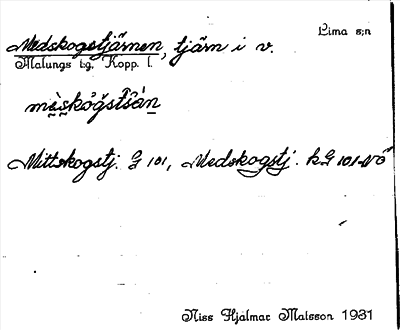 Lima s:n
Medskogstjärnen, tjärn i v.
Malungs tg, Kopp. l.
Mittskogstj. G 101, Medskogstj. kG 101 NÖ
Niss Hjalmar Matsson 1931